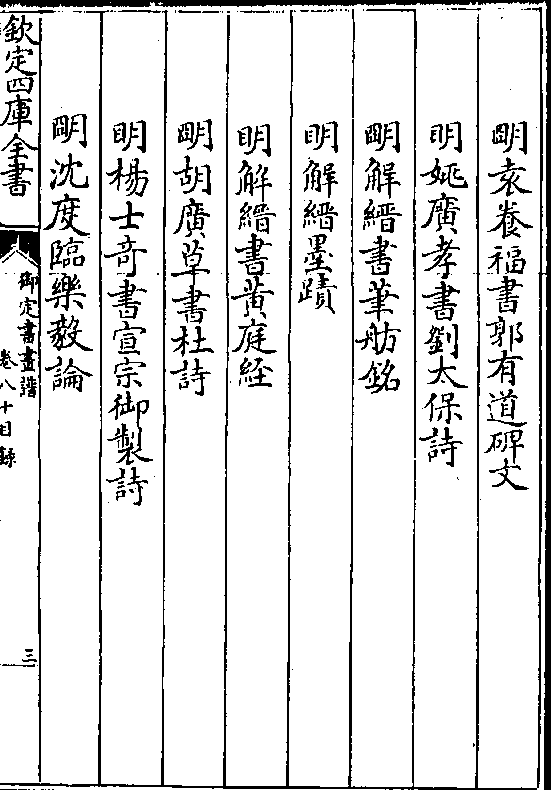 明袁養福書郭有道碑文
明姚廣孝書劉太保詩
明解縉書筆舫銘
明解縉墨蹟
明解縉書黃庭經
明胡廣草書杜詩
明楊士奇書宣宗御製詩
明沈度臨樂毅論
欽定四庫全書
御定書畫譜
卷八十目錄
三